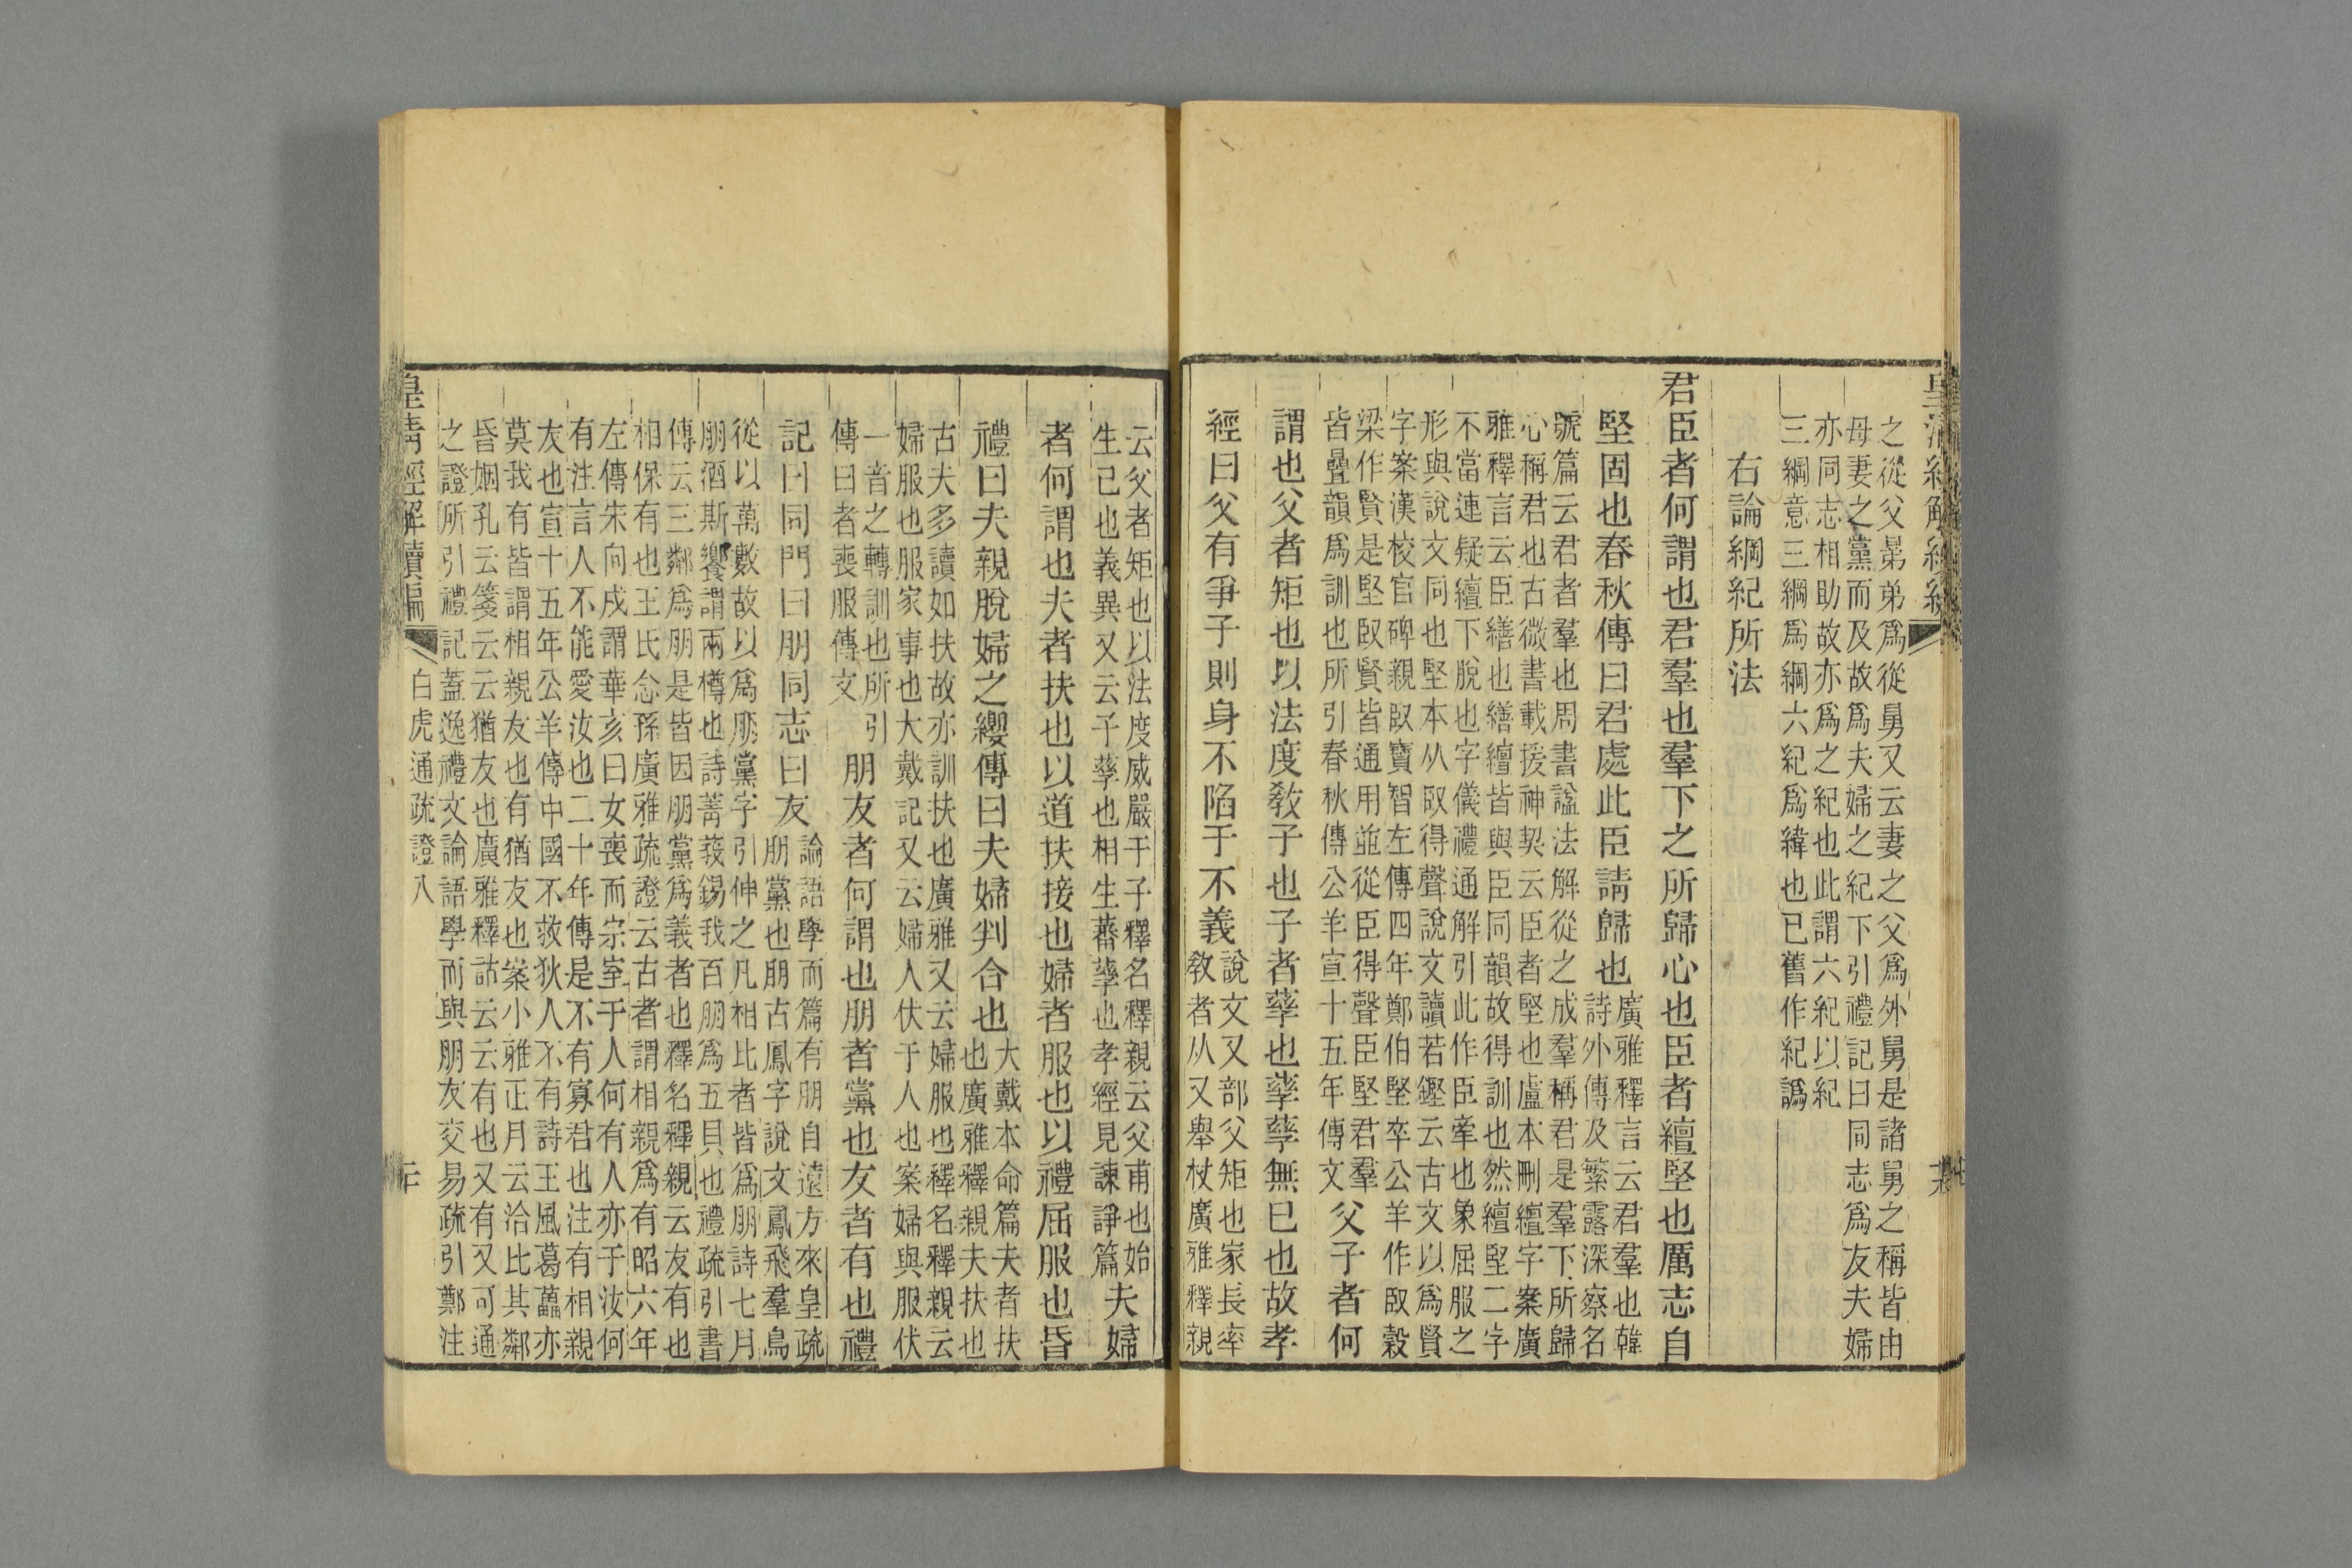 之從父晜弟爲從舅又云妻之父爲外舅是諸舅之稱皆由
母妻之黨而及故爲夫婦之紀下引禮記曰同志爲友夫婦
亦同志相助故亦爲之紀也此謂六紀以紀
三綱意三綱爲綱六紀爲緯也已舊作紀譌
右論綱紀所法
君臣者何謂也君羣也羣下之所歸心也臣者繵堅也厲志自
堅固也春秋傳曰君處此臣請歸也
廣雅釋言云君羣也韓
詩外傳及繁露深察名
號篇云君者羣也周書諡法解從之成羣稱君是羣下所歸
心稱君也古微書載援神契云臣者堅也盧本刪繵字案廣
雅釋言云臣繕也繕繵皆與臣同韻故得訓也然繵堅二字
不當連疑繵下脫也字儀禮通解引此作臣牽也象屈服之
形與說文同也堅本从臤得聲說文讀若鏗云古文以爲賢
字案漢校官碑親臤寶智左傳四年鄭伯堅卒公羊作臤穀
梁作賢是堅臤賢皆通用並從臣得聲臣堅君羣
皆疊韻爲訓也所引春秋傳公羊宣十五年傳文
父子者何
謂也父者矩也以法度敎子也子者孳也孳孳無已也故孝
經曰父有爭子則身不陷于不義
說文又部父矩也家長率
敎者从又舉杖廣雅釋親
云父者矩也以法度威嚴于子釋名釋親云父甫也始
生己也義異又云子孳也相生蕃孳也孝經見諫諍篇
夫婦
者何謂也夫者扶也以道扶接也婦者服也以禮屈服也昏
禮曰夫親脫婦之纓傳曰夫婦判合也
大戴本命篇夫者扶
也廣雅釋親夫扶也
古夫多讀如扶故亦訓扶也廣雅又云婦服也釋名釋親云
婦服也服家事也大戴記又云婦人伏于人也案婦與服伏
一音之轉訓也所引
傳曰者喪服傳文
朋友者何謂也朋者黨也友者有也禮
記曰同門曰朋同志曰友
論語學而篇有朋自遠方來皇疏
朋黨也朋古鳳字說文鳳飛羣鳥
從以萬數故以爲朋黨字引伸之凡相比者皆爲朋詩七月
朋酒斯饗謂兩樽也詩菁莪錫我百朋爲五貝也禮疏引書
傳云三鄰爲朋是皆因朋黨爲義者也釋名釋親云友有也
相保有也王氏念孫廣雅疏證云古者謂相親爲有昭六年
左傳宋向戌謂華亥曰女喪而宗室于人何有人亦于汝何
有注言人不能愛汝也二十年傳是不有寡君也注有相親
友也宣十五年公羊傳中國不救狄人不有詩王風葛藟亦
莫我有皆謂相親友也有猶友也案小雅正月云洽比其鄰
昏姻孔云箋云云猶友也廣雅釋詁云云有也又有又可通
之證所引禮記蓋逸禮文論語學而與朋友交易疏引鄭注
皇清經解續編
白虎通疏證八